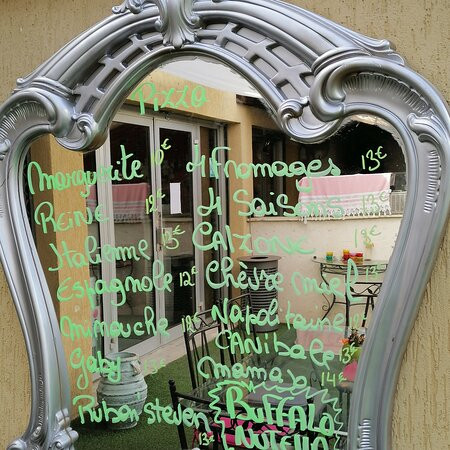 Pizza
Marguerite 10€
Reine 12€
Italienne 13€
Espagnole 12€
Mimouche
Gaby
Ruben steven 13€
4 Fromages 13€
4 Saisons 13€
CALZONE
Chèvre miel 13€
Napolitaine
CANibale 13€
mamax 14€
BUFFALO
NUTELLA